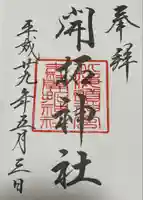 奉拝
開拓神社
平成廿九年五月三日